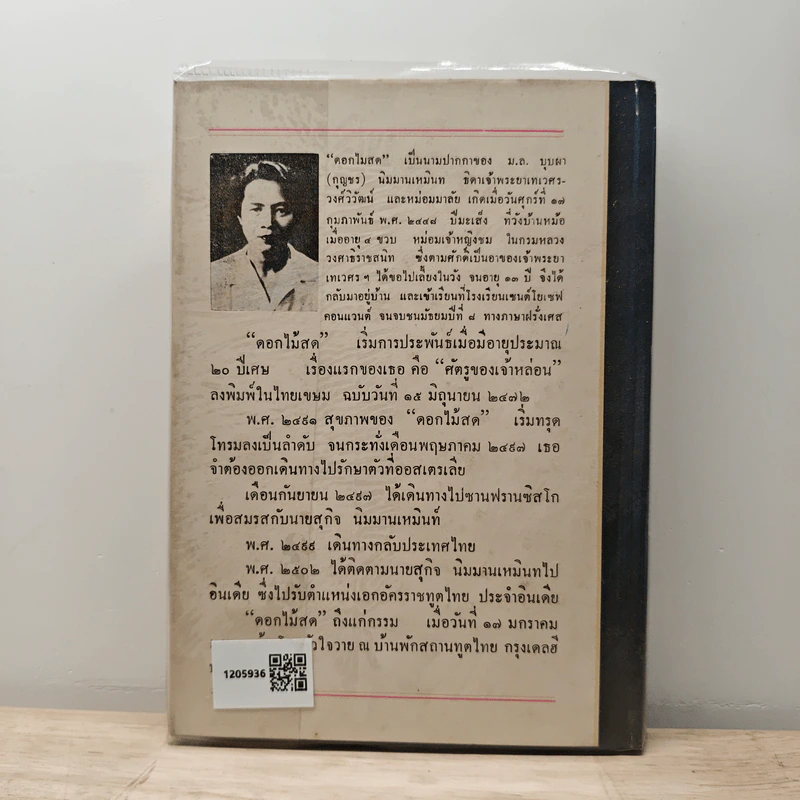 “ดอกไม้สด” เป็นนามปากกาของ ม.ล. บุบผา
(กุญชร) นิมมานเหมินท ธิดาเจ้าพระยาเทเวศร-
วงศ์วิวัฒน์ และหม่อมมาลัย เกิดเมื่อวันศุกร์ที่ ๑๗
กุมภาพันธ์ พ.ศ. ๒๔๔๘ ปีมะเส็ง ที่วังบ้านหม้อ
เมื่ออายุ ๔ ขวบ หม่อมเจ้าหญิงชม ในกรมหลวง
วงศาธิราชสนิท ซึ่งตามศักดิ์เป็นอาของเจ้าพระยา
เทเวศร ฯ ได้ขอไปเลี้ยงในวัง จนอายุ ๑๓ ปี จึงได้
กลับมาอยู่บ้าน และเข้าเรียนที่โรงเรียนเซนต์โยเซฟ
คอนแวนต์ จนจบชนมัธยมปีที่ ๘ ทางภาษาฝรั่งเศส
“ดอกไม้สด” เริ่มการประพันธ์เมื่อมีอายุประมาณ
๒๐ ปีเศษ เรื่องแรกของเธอ คือ “ศัตรูของเจ้าหล่อน”
ลงพิมพ์ในไทยเขษม ฉบับวันที่ ๑๕ มิถุนายน ๒๔๗๒
พ.ศ. ๒๔๙๑ สุขภาพของ “ดอกไม้สด” เริ่มทรุด
โทรมลงเป็นลำดับ จนกระทั่งเดือนพฤษภาคม ๒๔๙๗ เธอ
จำต้องออกเดินทางไปรักษาตัวที่ออสเตรเลีย
เดือนกันยายน ๒๔๙๗ ได้เดินทางไปซานฟรานซิสโก
เพื่อสมรสกับนายสุกิจ นิมมานเหมินท์
พ.ศ. ๒๔๙๙ เดินทางกลับประเทศไทย
พ.ศ. ๒๕๐๒ ได้ติดตามนายสุกิจ นิมมานเหมินทไป
อินเดีย ซึ่งไปรับตำแหน่งเอกอัครราชทูตไทย ประจำอินเดีย
“ดอกไม้สด” ถึงแก่กรรม เมื่อวันที่ ๑๗ มกราคม
หัวใจวาย ณ บ้านพักสถานทูตไทย กรุงเดลฮี
1205936